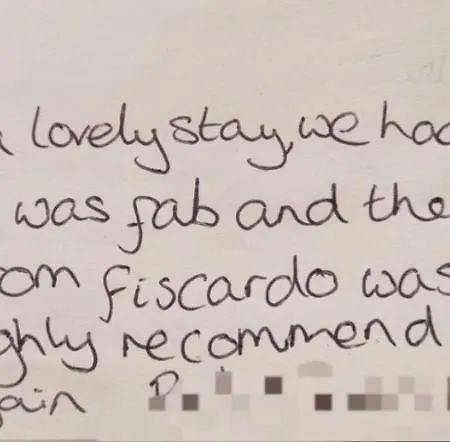 lovely stay, we had
was fab and the
om fiscardo was
ghly recommend
gain